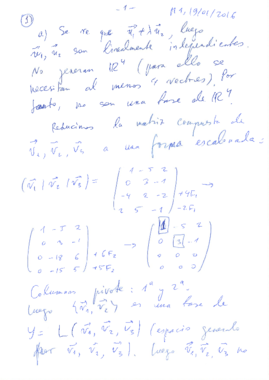 - 1 -
M1, 19/01/2016
1)
a) Se ve que v⃗₁ ≠ λ v⃗₂, luego
v⃗₁, v⃗₂ son linealmente independientes.
No generan ℝ⁴ (para ello se
necesitan al menos 4 vectores). Por
tanto, no son una base de ℝ⁴.
Reducimos la matriz compuesta de
v⃗₁, v⃗₂, v⃗₃ a una forma escalonada:
(v⃗₁ | v⃗₂ | v⃗₃) =
1 -5 2
0 3 -1
+4F₁
2 5 -1 -2F₁
1 -5 2
0 3 -1
0 -18 6 +6F₂
0 -15 5 +5F₂
1 -5 2
0 3 -1
0 0 0
0 0 0
Columnas pivote: 1ª y 2ª.
Luego {v⃗₁, v⃗₂} es una base de
= L(v⃗₁, v⃗₂, v⃗₃) (espacio generado
por v⃗₁, v⃗₂, v⃗₃). Luego v⃗₁, v⃗₂, v⃗₃ no